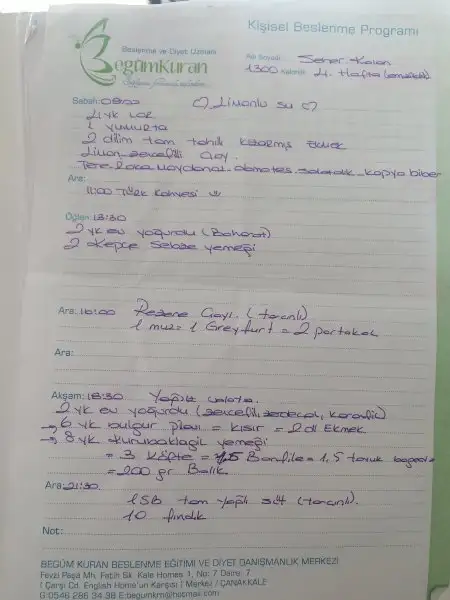 Kişisel Beslenme Programı
Beslenme ve Diyet Uzmanı
BegümKuran
Adı Soyadı: Seher Kalan
1300 Kalorilik 4. Hafta
Sabah: 08:00 ♡ Limonlu su ♡
2 yk Lor
1 yumurta
2 dilim tam tahıllı kızarmış Ekmek
Limon zencefilli Çay.
Tere Roka Maydonat domates salatalık kapya biber
Ara:
11:00 Türk Kahvesi
Öğlen: 13:30
2 yk ev yoğurdu (Baharat)
2 Kepçe Sebze yemeği
Ara: 16:00 Rezene Çayı. (tarçınlı)
1 muz = 1 Greyfurt = 2 portakal
Ara:
Akşam: 18:30 Yeşil salata.
2 yk ev yoğurdu (zencefil, zerdeçal, karanfil)
→ 6 yk bulgur pilavı = kısır = 2 dl Ekmek.
→ 8 yk kurubaklagil yemeği
= 3 Köfte = 1,5 Bonfile = 1,5 tavuk bageti
= 200 gr Balık.
Ara: 21:30
1 SB tam yağlı süt (tarçınlı).
10 fındık
Not:
BEGÜM KURAN BESLENME EĞİTİMİ VE DİYET DANIŞMANLIK MERKEZİ
Fevzi Paşa Mh. Fatih Sk. Kale Homes 1, No: 7 Daire: 7
( Çarşı Cd. English Home'un Karşısı ) Merkez / ÇANAKKALE
G:0546 286 34 38 E:begumkrn@hotmail.com